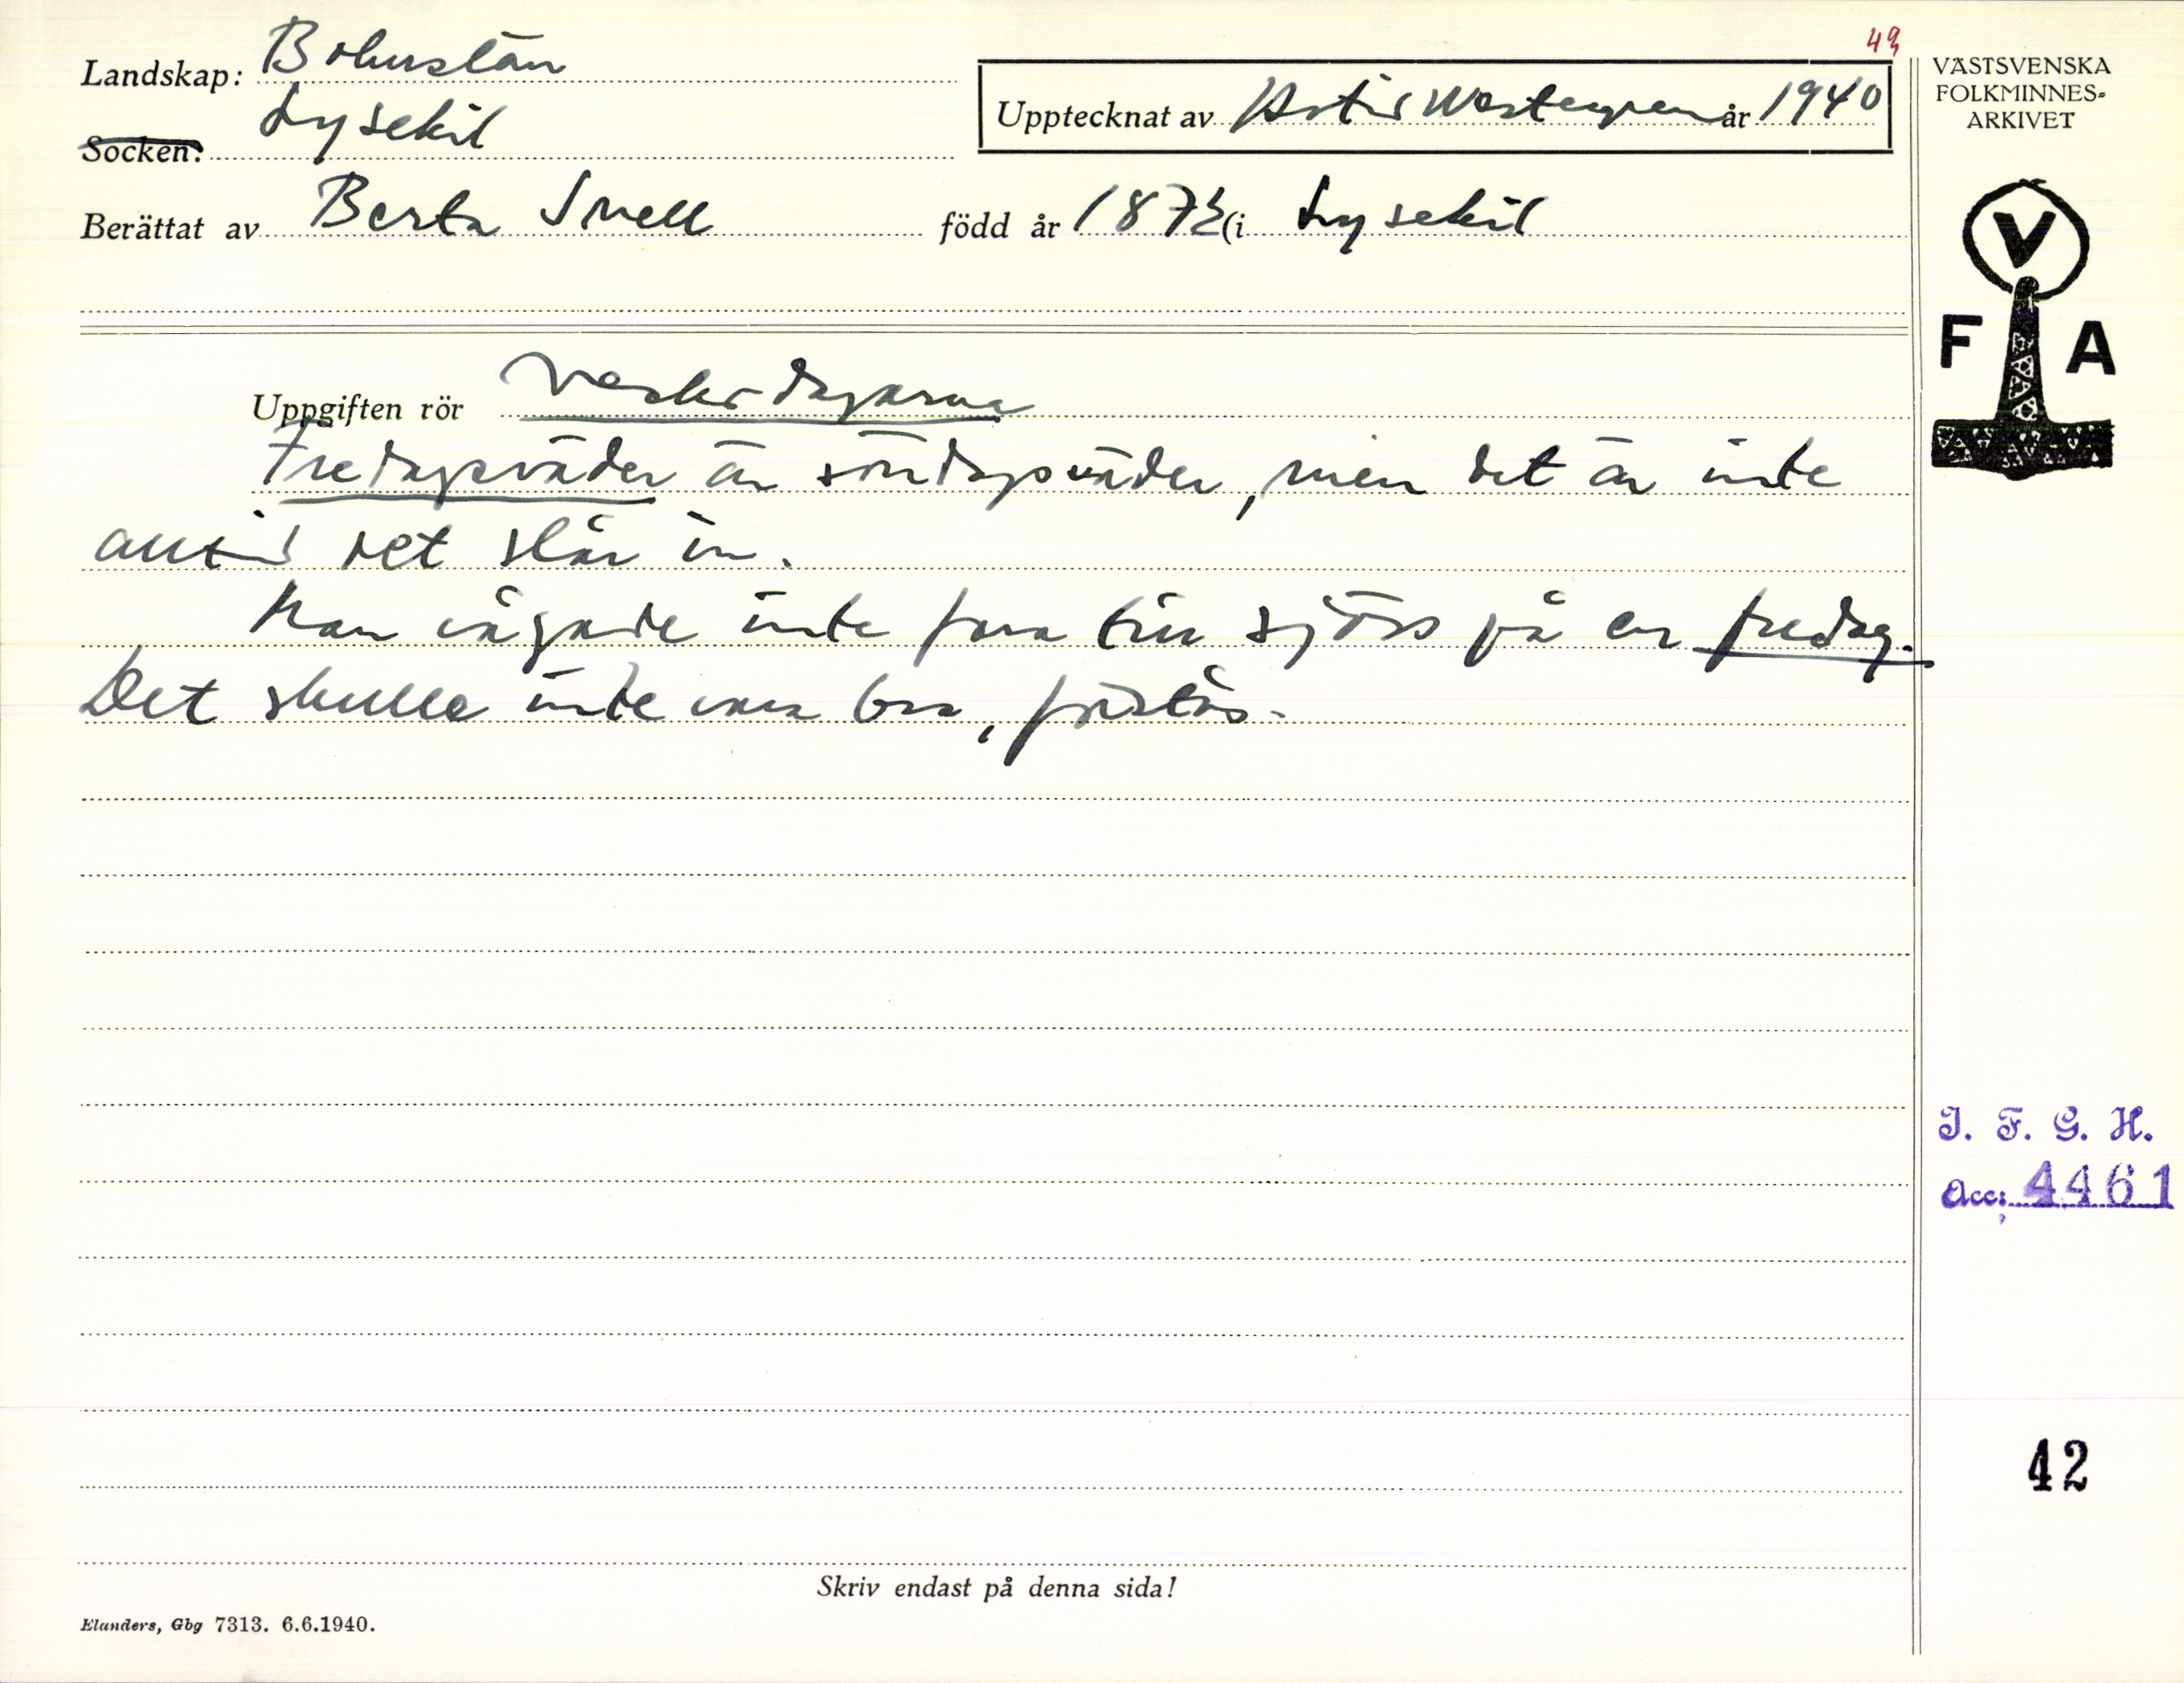 49
Landskap: Bohuslän
Socken: Lysekil
Upptecknat av Astrid Westergren år 1940
Berättat av Berta Snell född år 1873 (i Lysekil
VÄSTSVENSKA
FOLKMINNES-
ARKIVET
V
F A
Uppgiften rör Veckodagarna
Fredagsväder är söndagsväder, men det är inte
alltid det slår in.
Man vågade inte fara till sjöss på en fredag.
Det skulle inte vara bra, förstås.
I. F. G. H.
Acc: 4461
42
Skriv endast på denna sida!
Elanders, Gbg 7313. 6.6.1940.